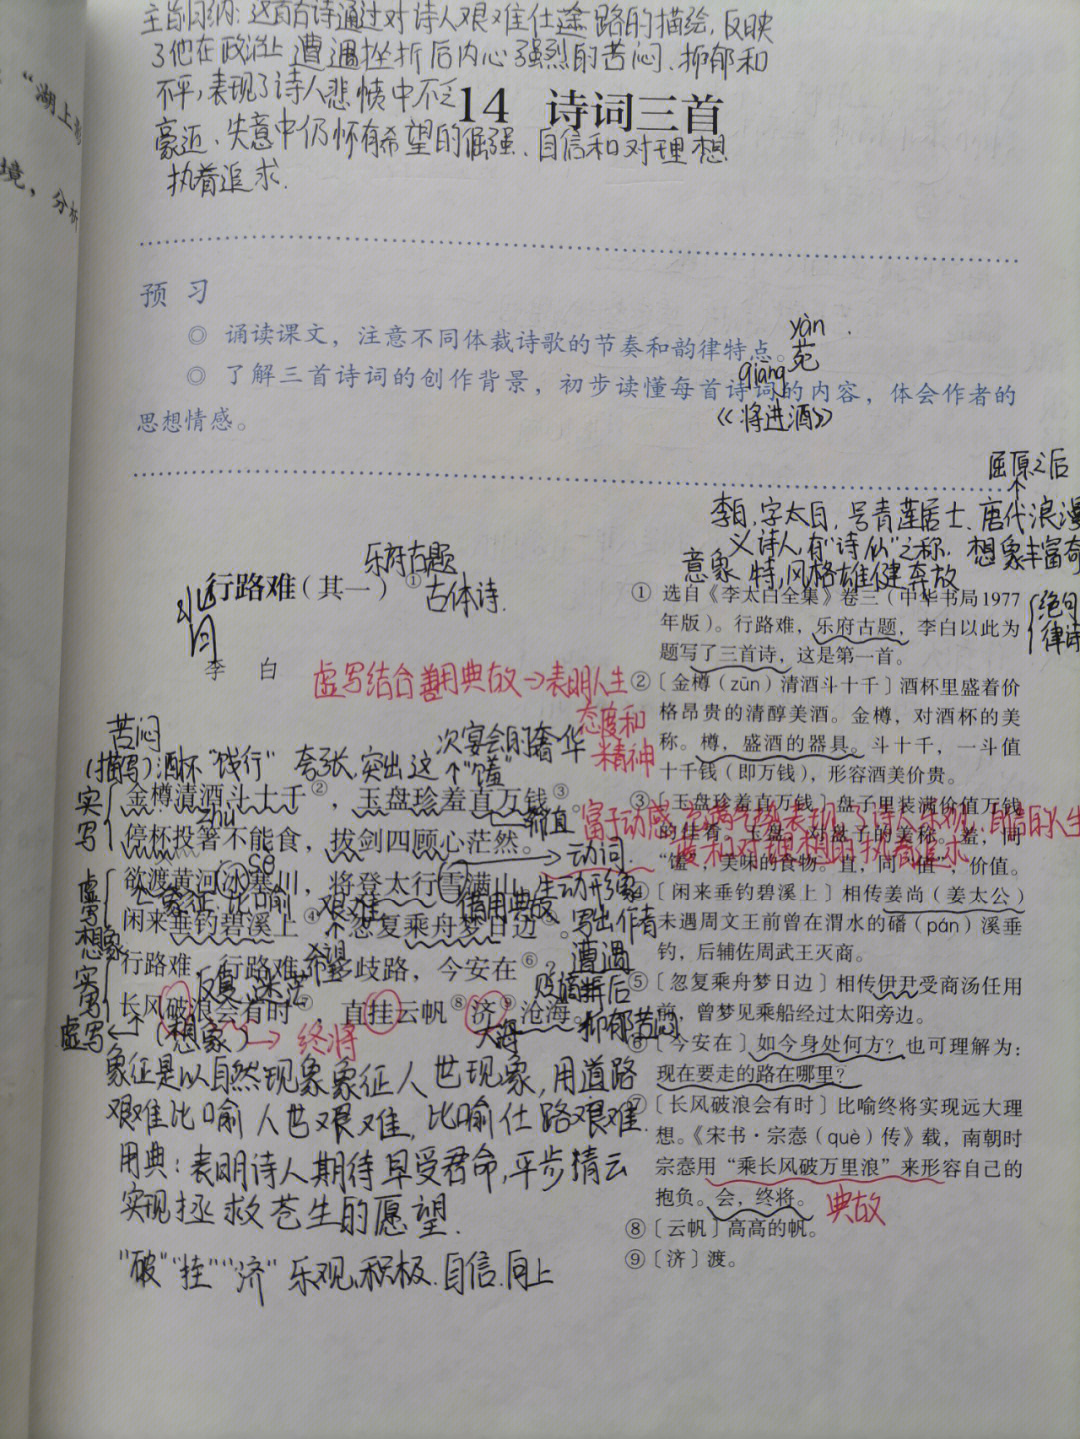 主旨归纳：这首古诗通过对诗人艰难仕途路的描绘，反映
了他在政治上遭遇挫折后内心强烈的苦闷、抑郁和
不平，表现了诗人悲愤中不乏
豪迈、失意中仍怀有希望的倔强、自信和对理想
执着追求.
“湖上
境，分析
14 诗词三首
预 习
◎ 诵读课文，注意不同体裁诗歌的节奏和韵律特点。
◎ 了解三首诗词的创作背景，初步读懂每首诗词的内容，体会作者的
思想情感。
yàn
qiāng
《将进酒》
屈原之后
李白，字太白，号青莲居士，唐代浪漫
义诗人，有“诗仙”之称. 想象丰富奇
意象 特，风格雄健奔放
绝句
律诗
乐府古题
行路难（其一）①
古体诗.
李 白
虚写结合善用典故→表明人生
态度和
精神
苦闷
(描写)酒杯“饯行” 夸张，突出这
次宴会的奢华
个“馐”
实写
金樽清酒斗十千②，玉盘珍羞直万钱③。
zhù
停杯投箸不能食，拔剑四顾心茫然。
动词.
欲渡黄河冰塞川，将登太行雪满山。
象征 比喻 艰难 借用典故
虚写想象
闲来垂钓碧溪上④，忽复乘舟梦日边⑤。
生动形象
写出作者
遭遇
行路难，行路难，多歧路，今安在⑥？
希望
反复 迷茫
实写
长风破浪会有时⑦，直挂云帆⑧济⑨沧海。
抑郁苦闷
虚写←(想象)→终将
大海
象征是以自然现象象征人世现象，用道路
艰难比喻人世艰难，比喻仕路艰难.
用典：表明诗人期待早受君命，平步青云
实现拯救苍生的愿望.
“破”“挂”“济” 乐观、积极、自信、向上
① 选自《李太白全集》卷三（中华书局1977
年版）。行路难，乐府古题，李白以此为
题写了三首诗，这是第一首。
②〔金樽（zūn）清酒斗十千〕酒杯里盛着价
格昂贵的清醇美酒。金樽，对酒杯的美
称。樽，盛酒的器具。斗十千，一斗值
十千钱（即万钱），形容酒美价贵。
③〔玉盘珍羞直万钱〕盘子里装满价值万钱
的佳肴。玉盘，对盘子的美称。羞，同
“馐”，美味的食物。直，同“值”，价值。
④〔闲来垂钓碧溪上〕相传姜尚（姜太公）
未遇周文王前曾在渭水的磻（pán）溪垂
钓，后辅佐周武王灭商。
⑤〔忽复乘舟梦日边〕相传伊尹受商汤任用
前，曾梦见乘船经过太阳旁边。
⑥〔今安在〕如今身处何方？也可理解为：
现在要走的路在哪里？
⑦〔长风破浪会有时〕比喻终将实现远大理
想。《宋书·宗悫（què）传》载，南朝时
宗悫用“乘长风破万里浪”来形容自己的
抱负。会，终将。
典故
⑧〔云帆〕高高的帆。
⑨〔济〕渡。